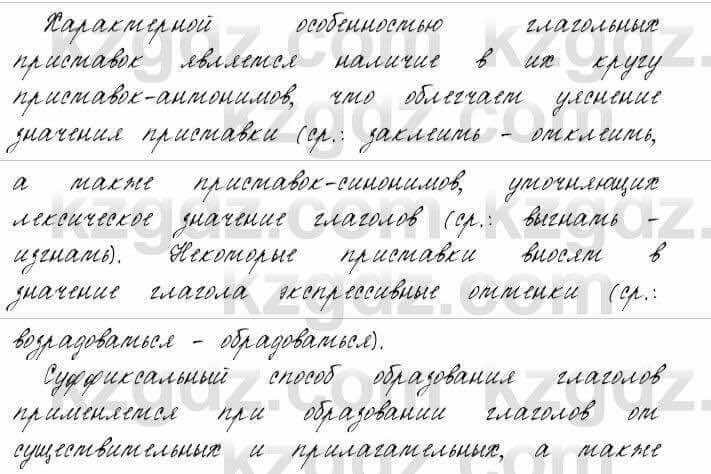 Характерной особенностью глагольных
приставок является наличие в их кругу
приставок-антонимов, что облегчает уяснение
значения приставки (ср.: заклеить - отклеить,
а также приставок-синонимов, уточняющих
лексическое значение глаголов (ср.: выгнать -
изгнать). Некоторые приставки вносят в
значение глагола экспрессивные оттенки (ср.:
возрадоваться - обрадоваться).
Суффиксальный способ образования глаголов
применяется при образовании глаголов от
существительных и прилагательных, а также